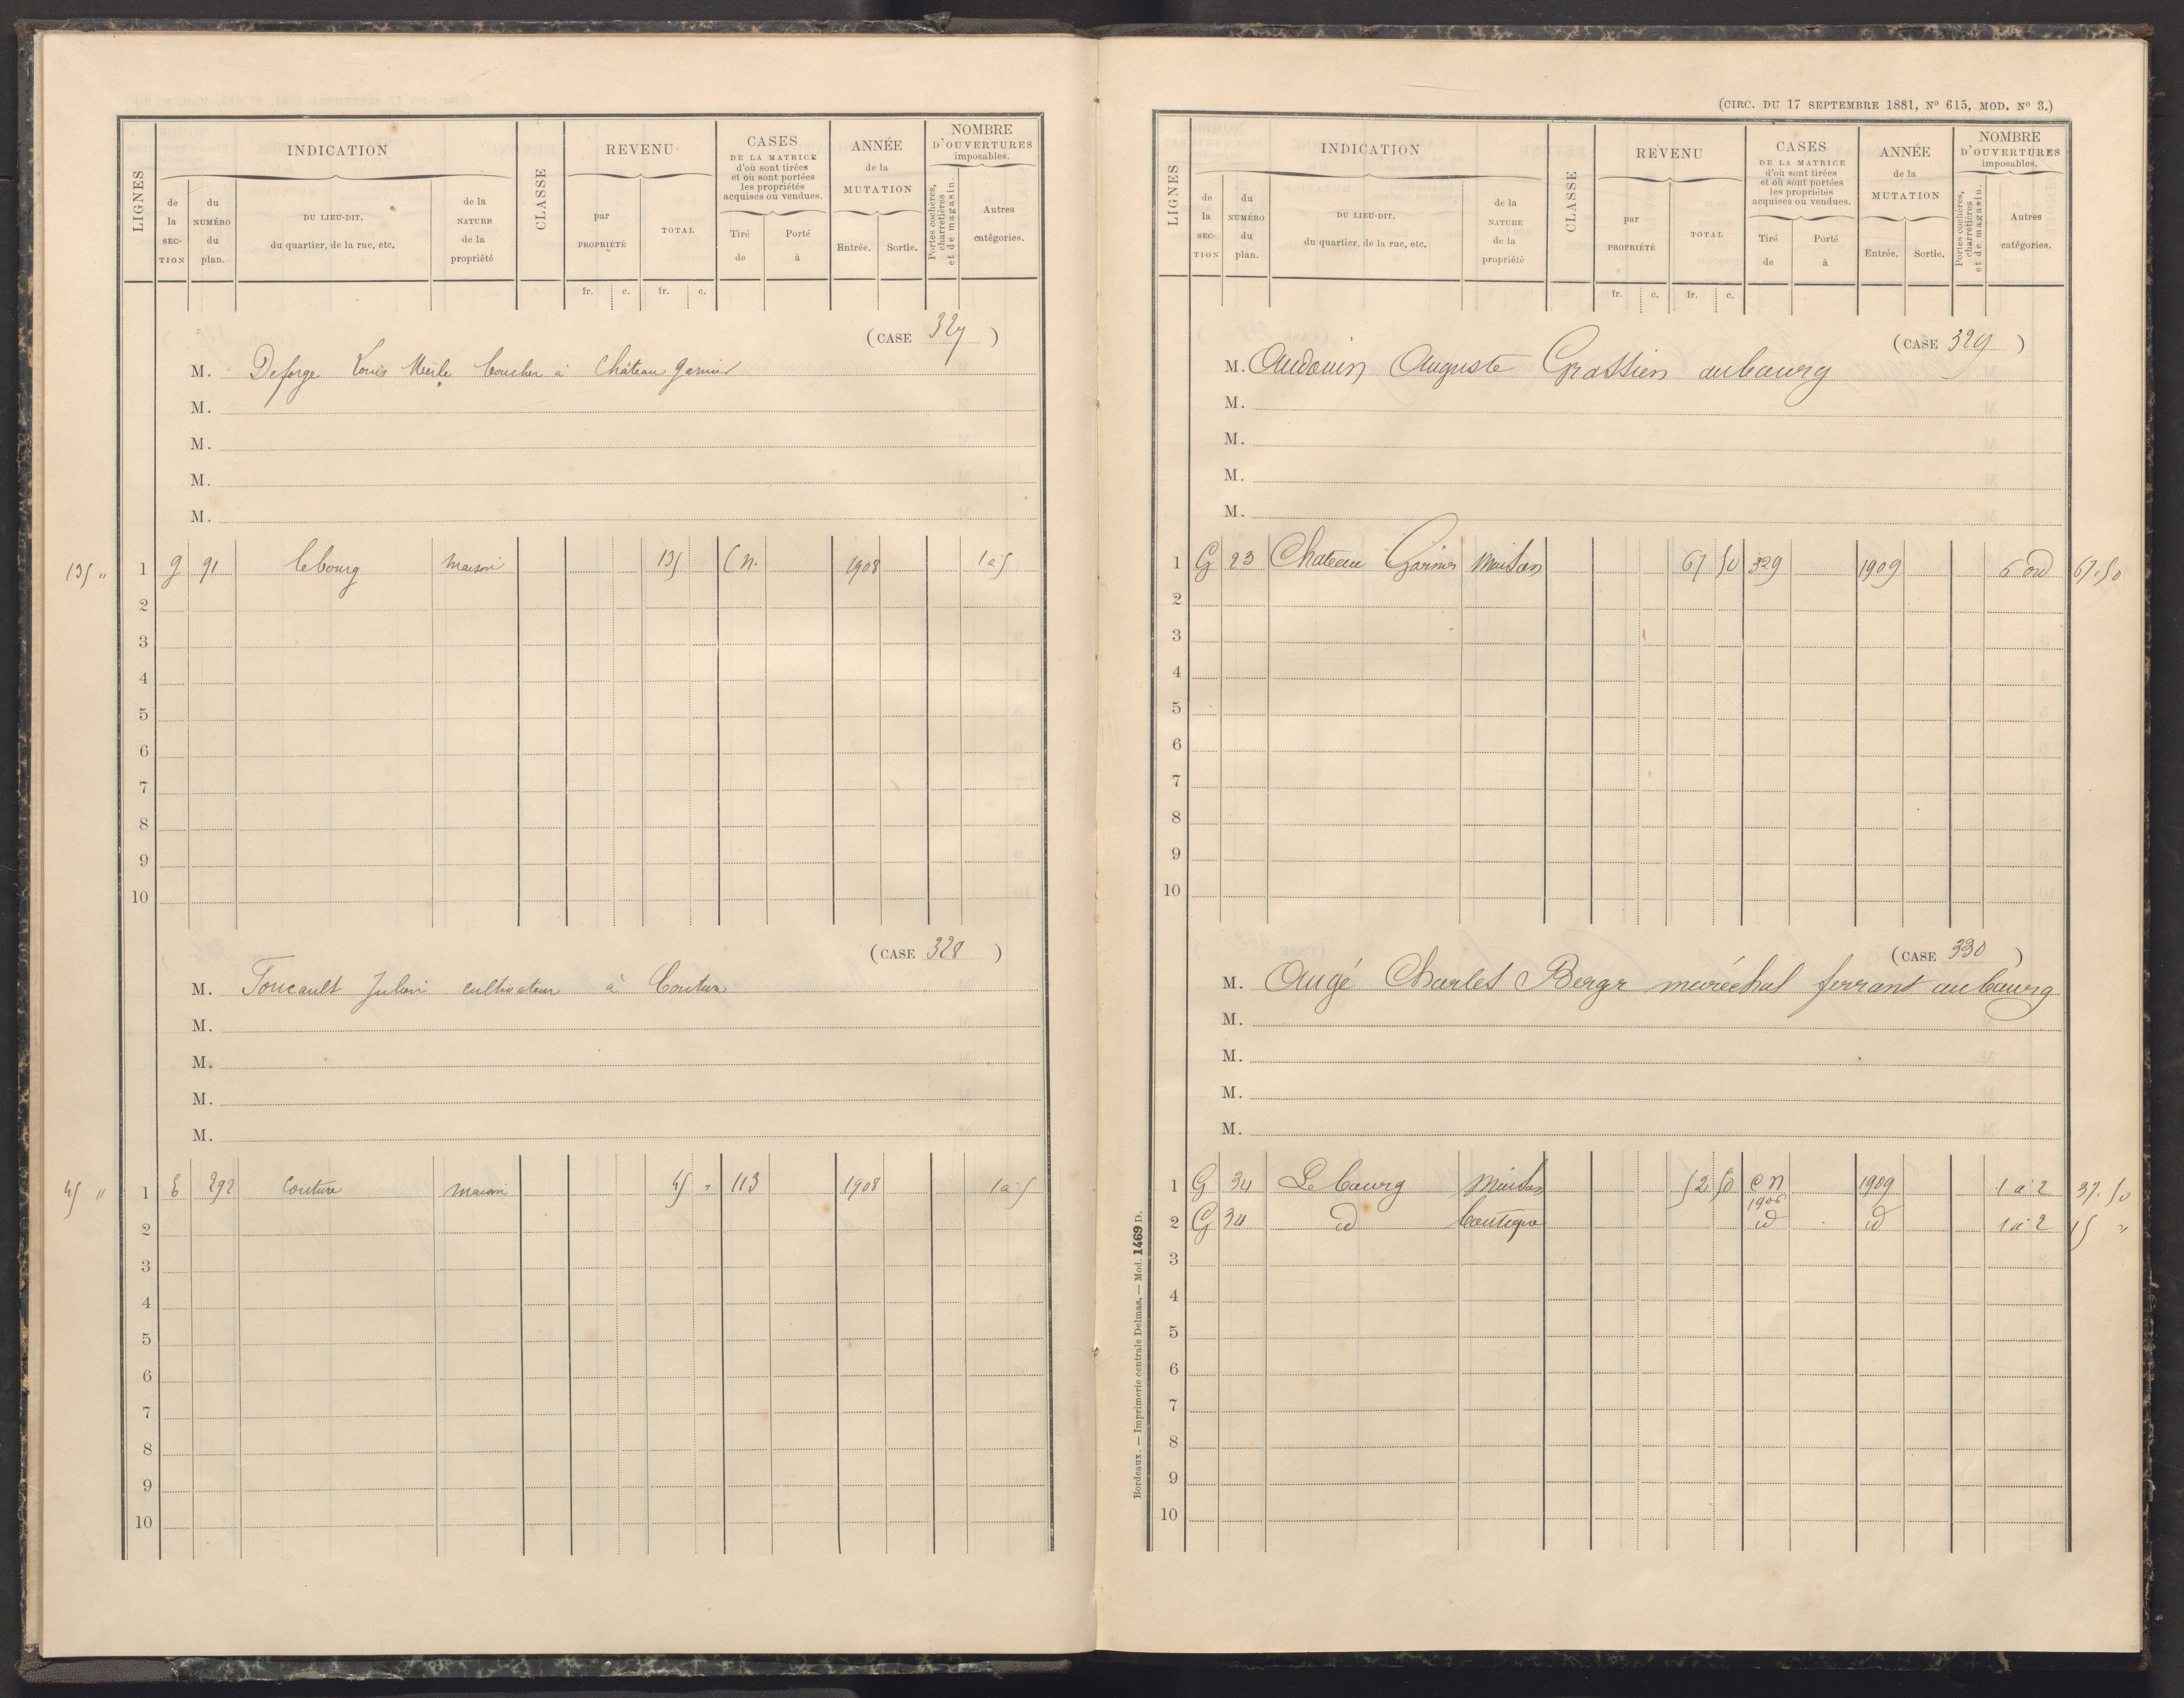 LIGNES
INDICATION
de la SECTION
du NUMÉRO du plan.
DU LIEU-DIT, du quartier, de la rue, etc.
de la NATURE de la propriété
CLASSE
REVENU
par PROPRIÉTÉ
TOTAL
fr. c. fr. c.
CASES DE LA MATRICE d'où sont tirées et où sont portées les propriétés acquises ou vendues.
Tiré de
Porté à
ANNÉE de la MUTATION
Entrée. Sortie.
NOMBRE D'OUVERTURES imposables.
Portes cochères, charretières et de magasin.
Autres catégories.
(CASE 327)
M. Deforge Louis boucher à Château Garnier
M.
M.
M.
M.
135 " 1 g 91 le bourg maison 135 C n. 1908 1 à 5
2
3
4
5
6
7
8
9
10
(CASE 328)
M. Foucault Julien cultivateur à Couture
M.
M.
M.
M.
45 " 1 E 292 Couture maison 45 " 113 1908 1 à 5
2
3
4
5
6
7
8
9
10
(CIRC. DU 17 SEPTEMBRE 1881, N° 615, MOD. N° 3.)
LIGNES
INDICATION
de la SECTION
du NUMÉRO du plan.
DU LIEU-DIT, du quartier, de la rue, etc.
de la NATURE de la propriété
CLASSE
REVENU
par PROPRIÉTÉ
TOTAL
fr. c. fr. c.
CASES DE LA MATRICE d'où sont tirées et où sont portées les propriétés acquises ou vendues.
Tiré de
Porté à
ANNÉE de la MUTATION
Entrée. Sortie.
NOMBRE D'OUVERTURES imposables.
Portes cochères, charretières et de magasin.
Autres catégories.
(CASE 329)
M. Audouin Auguste Grattien au bourg
M.
M.
M.
M.
1 G 23 Chateau Garnier Maison 67 50 329 1909 6 ord 67.50
2
3
4
5
6
7
8
9
10
(CASE 330)
M. Augé Charles Berge maréchal ferrant au bourg
M.
M.
M.
M.
1 G 34 Le bourg Maison 52 50 C n 1906 1909 1 à 2 37.50
2 G 34 id boutique id id 1 à 2 15 "
3
4
5
6
7
8
9
10
Bordeaux. — Imprimerie centrale Delmas. — Mod. 1469 D.